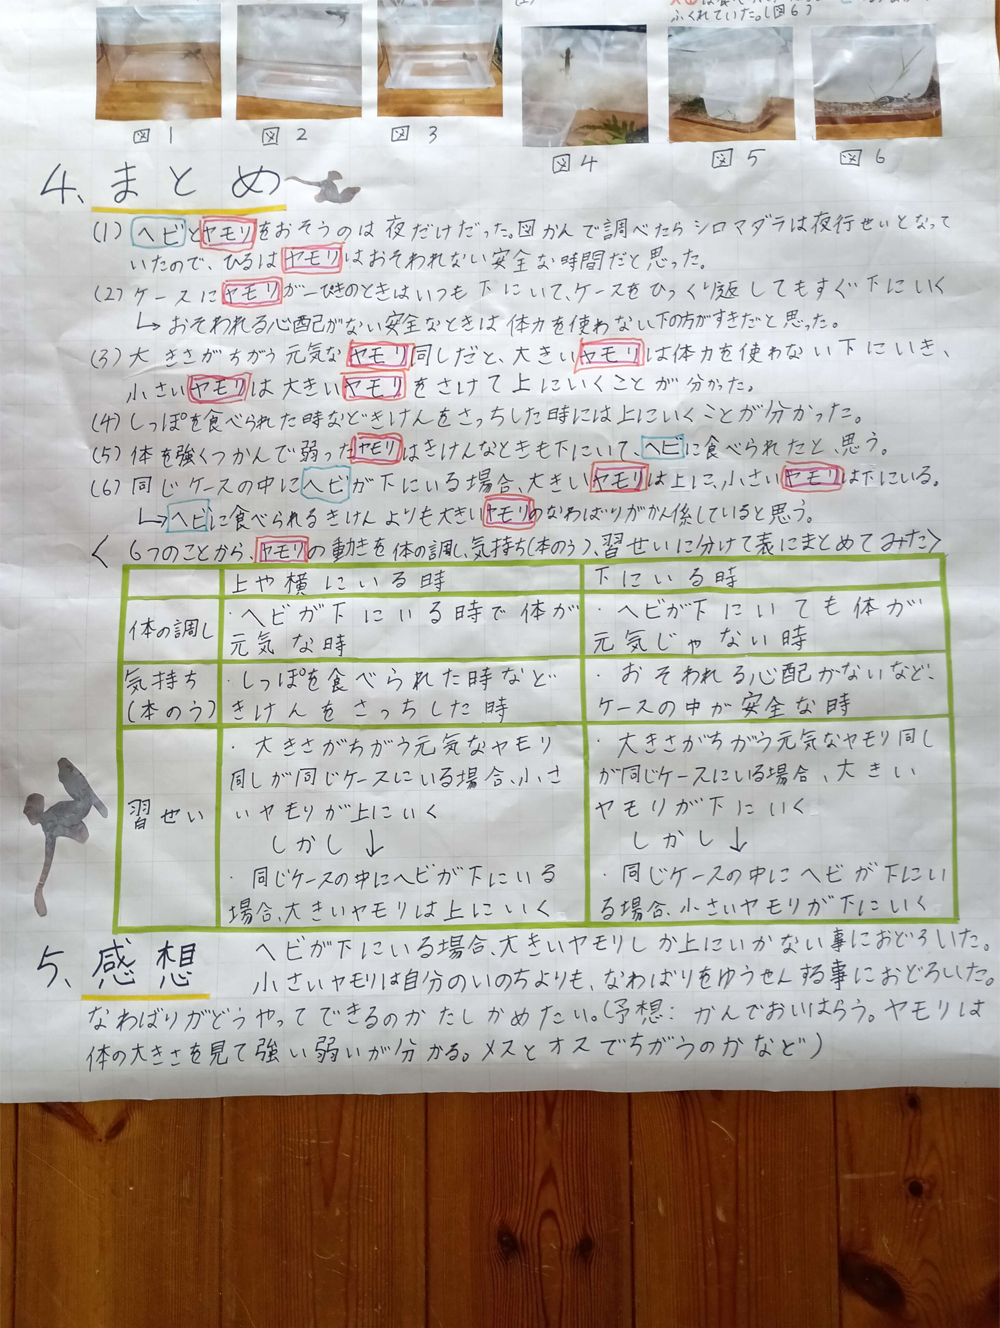 ふくれていた。(図6)
図1
図2
図3
図4
図5
図6
4、まとめ
(1) ヘビとヤモリをおそうのは夜だけだった。図かんで調べたらシロマダラは夜行せいとなって
いたので、ひるはヤモリはおそわれない安全な時間だと思った。
(2) ケースにヤモリが一ぴきのときはいつも下にいて、ケースをひっくり返してもすぐ下にいく
↳ おそわれる心配がない安全なときは体力を使わない下の方がすきだと思った。
(3) 大きさがちがう元気なヤモリ同しだと、大きいヤモリは体力を使わない下にいき、
小さいヤモリは大きいヤモリをさけて上にいくことが分かった。
(4) しっぽを食べられた時などきけんをさっちした時には上にいくことが分かった。
(5) 体を強くつかんで弱ったヤモリはきけんなときも下にいて、ヘビに食べられたと、思う。
(6) 同じケースの中にヘビが下にいる場合、大きいヤモリは上に、小さいヤモリは下にいる。
↳ヘビに食べられるきけんよりも大きいヤモリのなわばりがかん係していると思う。
〈6つのことから、ヤモリの動きを体の調し、気持ち(本のう)、習せいに分けて表にまとめてみた〉
上や横にいる時
下にいる時
体の調し
・ヘビが下にいる時で体が
元気な時
・ヘビが下にいても体が
元気じゃない時
気持ち
(本のう)
・しっぽを食べられた時など
きけんをさっちした時
・おそわれる心配がないなど、
ケースの中が安全な時
習せい
・大きさがちがう元気なヤモリ
同しが同じケースにいる場合、小さ
いヤモリが上にいく
しかし↓
・同じケースの中にヘビが下にいる
場合、大きいヤモリは上にいく
・大きさがちがう元気なヤモリ同し
が同じケースにいる場合、大きい
ヤモリが下にいく
しかし↓
・同じケースの中にヘビが下にい
る場合、小さいヤモリが下にいく
5、感想
ヘビが下にいる場合、大きいヤモリしか上にいかない事におどろいた。
小さいヤモリは自分のいのちよりも、なわばりをゆうせんする事におどろいた。
なわばりがどうやってできるのかたしかめたい。(予想：かんでおいはらう。ヤモリは
体の大きさを見て強い弱いが分かる。メスとオスでちがうのかなど)